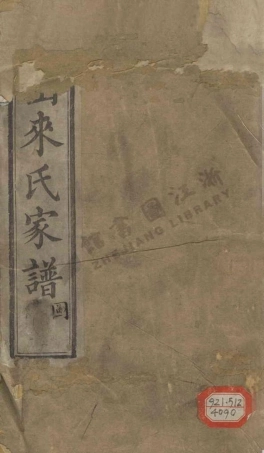 山來氏家譜
圖
浙江圖書館
ZHEJIANG LIBRARY
921.512
4090